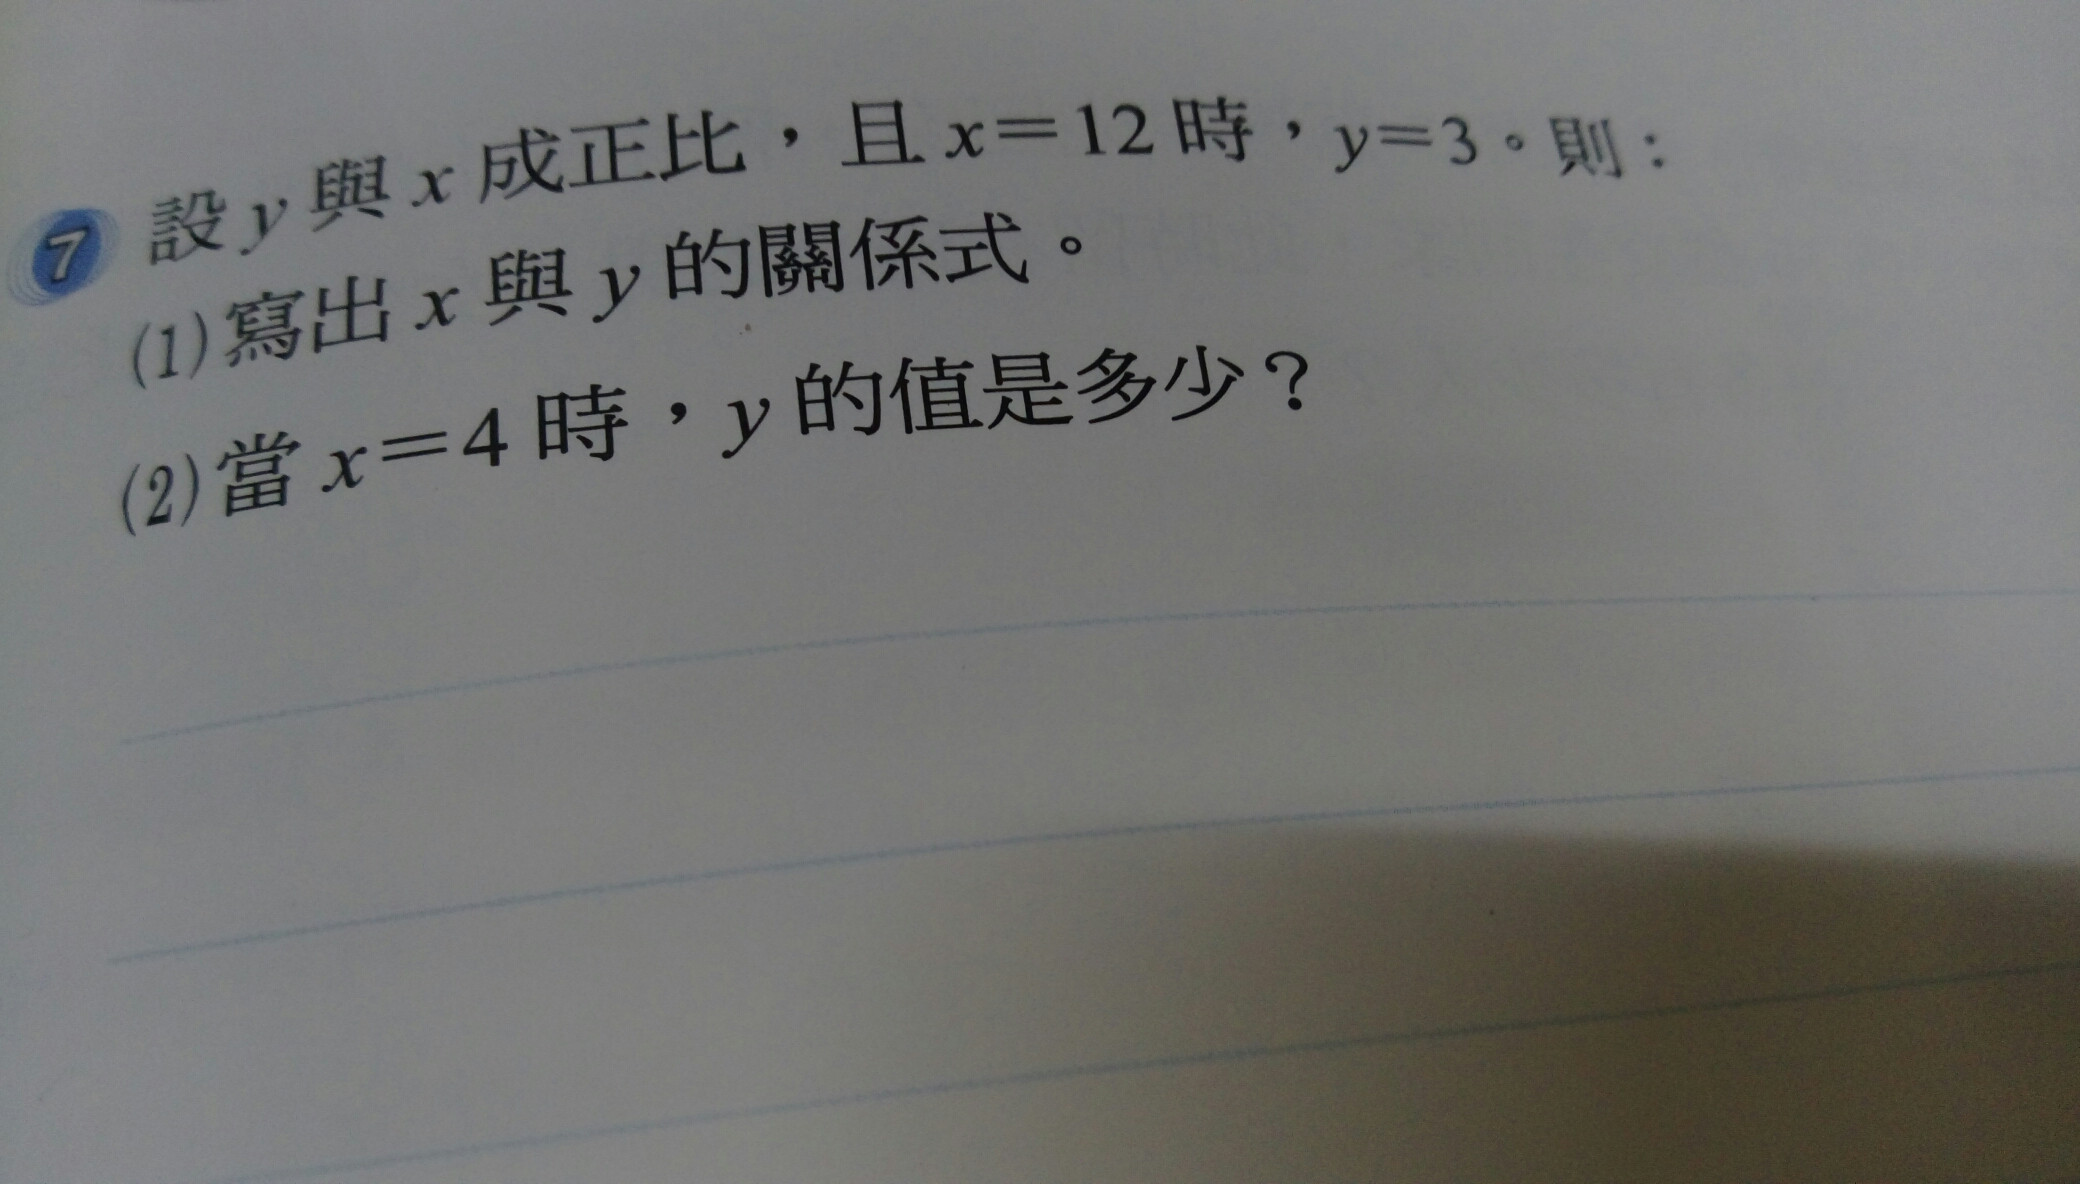 7 設y與x成正比，且x=12時，y=3。則：
(1)寫出x與y的關係式。
(2)當x=4時，y的值是多少？